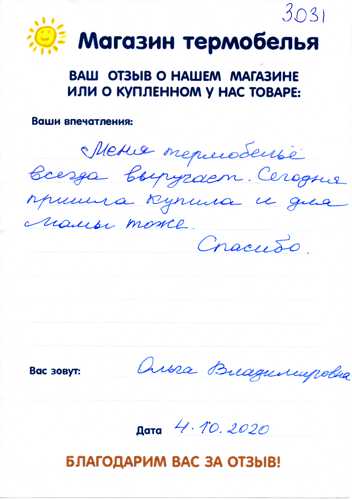 3031
Магазин термобелья
ВАШ ОТЗЫВ О НАШЕМ МАГАЗИНЕ
ИЛИ О КУПЛЕННОМ У НАС ТОВАРЕ:
Ваши впечатления:
Меня термобельё
всегда выручает. Сегодня
пришла купила и для
мамы тоже.
Спасибо.
Вас зовут: Ольга Владимировна
Дата 4.10.2020
БЛАГОДАРИМ ВАС ЗА ОТЗЫВ!